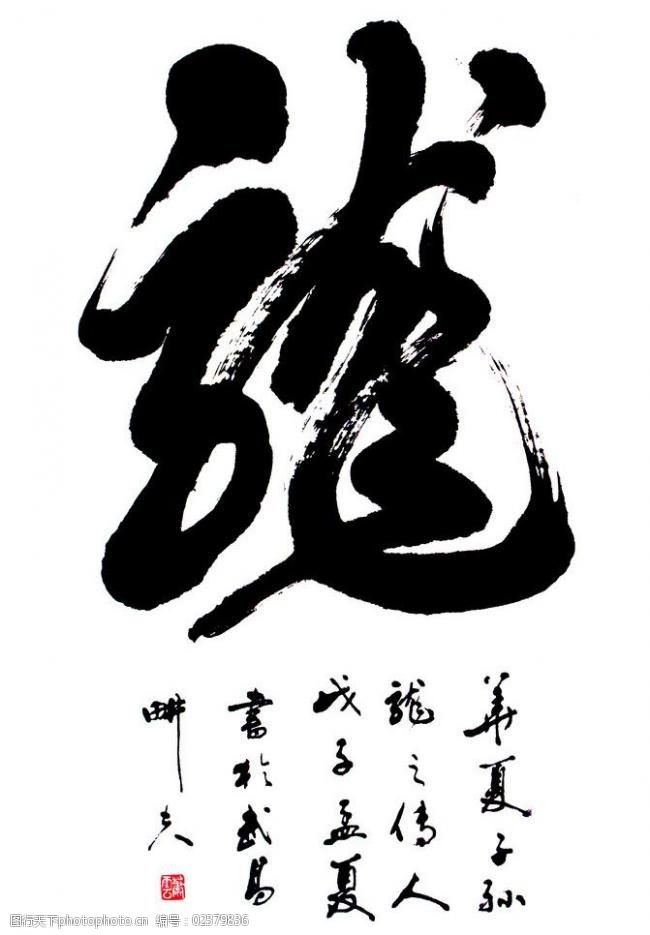 龍
華夏子孫
龍之傳人
戊子孟夏
書於武昌
畊夫
图行天下 photophoto.cn 编号：02379836